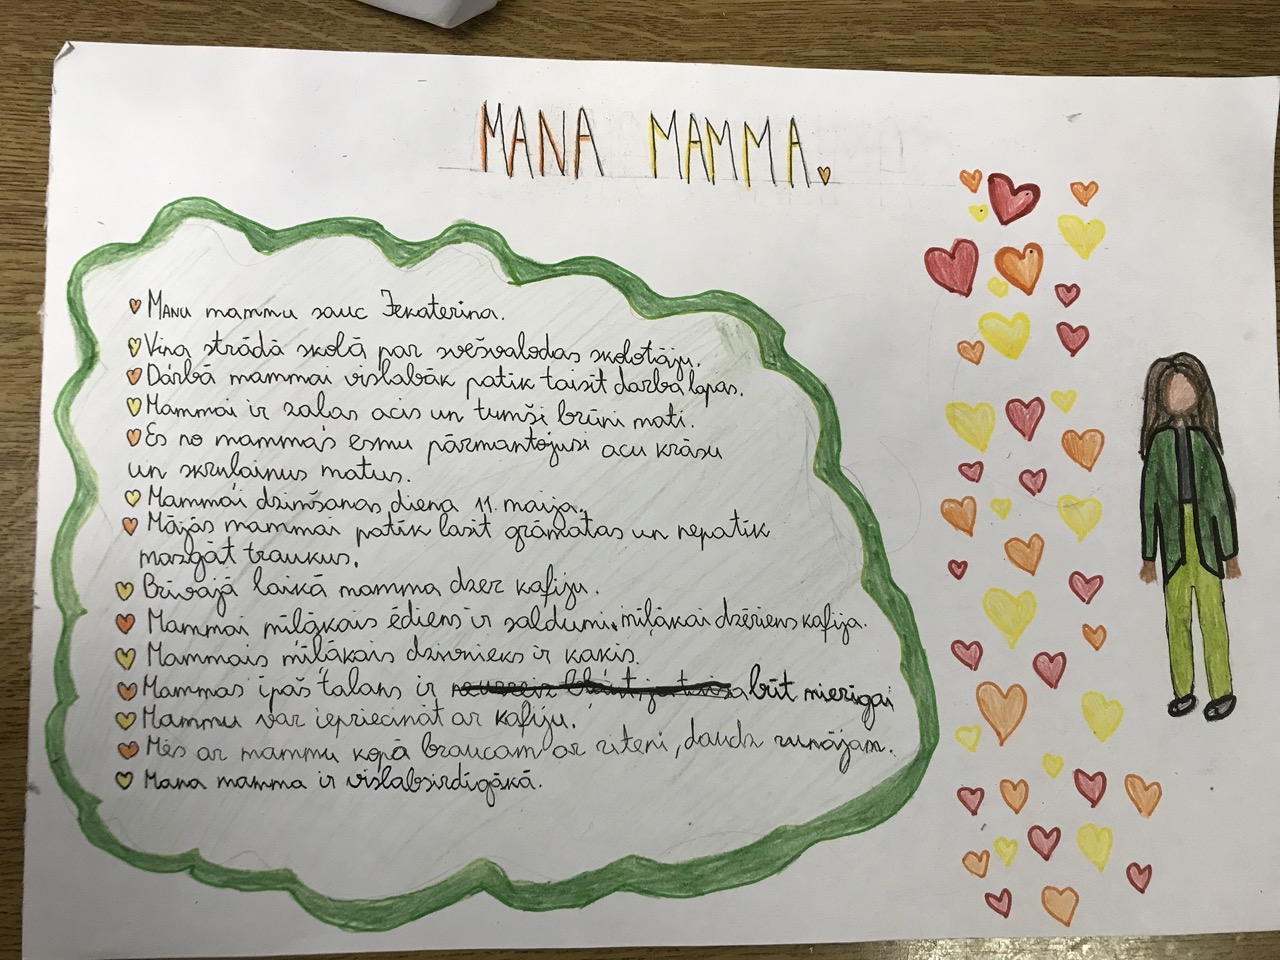 MANA MAMMA.
Manu mammu sauc Jekaterina.
Viņa strādā skolā par svešvalodas skolotāju.
Dárbā mammai vislabāk patīk taisīt darba lapas.
Mammai ir zaļas acis un tumši brūni mati.
Es no mammas esmu pārmantojusi acu krāsu
un skrulainus matus.
Mammai dzimšanas diena 11. maijā.
Mājās mammai patīk lasīt grāmatas un nepatīk
mazgāt traukus.
Brīvajā laikā mamma dzer kafiju.
Mammai mīļākais ēdiens ir saldumi, mīļākai dzēriens kafija.
Mammais mīļākais dzīvnieks ir kaķis.
Mammas īpašs talans ir būt mierīgai
Mammu var iepriecināt ar kafiju.
Mēs ar mammu kopā braucam ar riteni, daudz runājam.
Mana mamma ir vislabsirdīgākā.